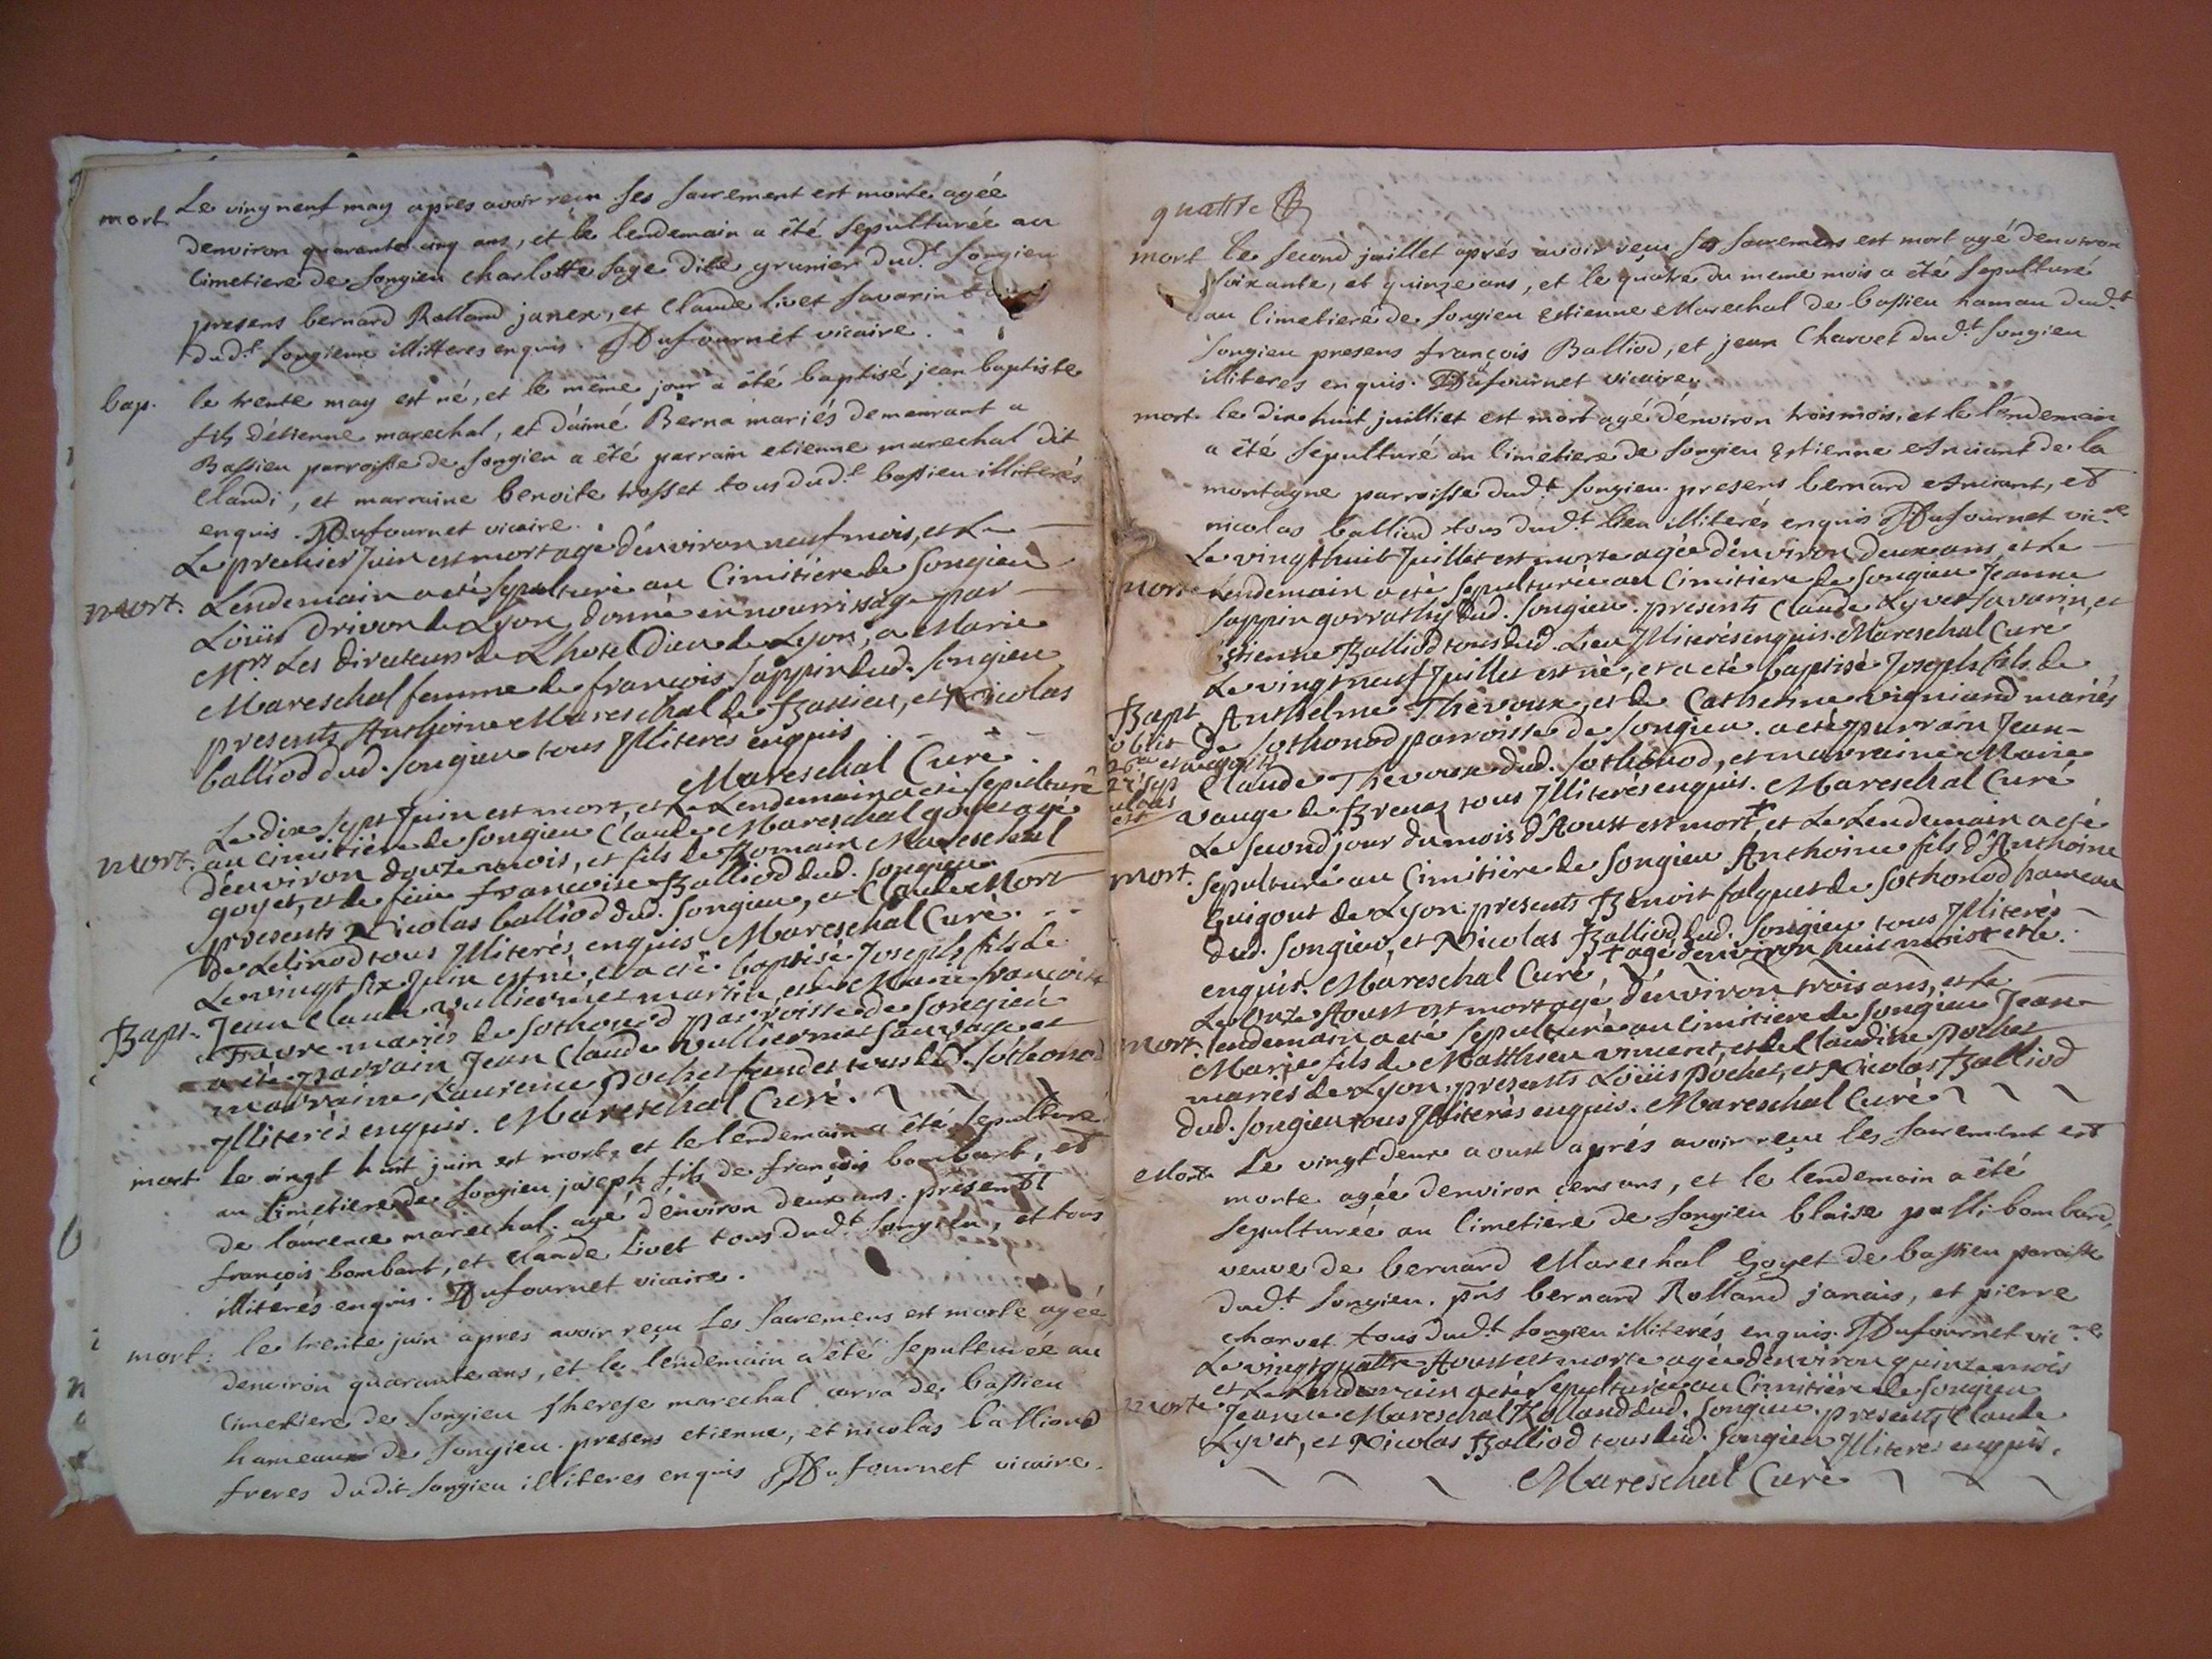 mort. Le ving neuf may apres avoir recu ses sacrement est morte agée
denviron quarante cinq ans, et le lendemain a été sepulturée au
Cimetiere de songieu charlotte sage dite grunier dud.t songieu
presens bernard Rolland janex, et Claude livet savarin
dud.t songieux illitteres enquis. Dufournet vicaire.
bap. le trente may est né, et le même jour a été baptisé jean baptiste
fils détienne marechal, et d'aimé Berna mariés demeurant a
Bassieu parroisse de songieu a été parrain etienne marechal dit
Claudi, et marraine benoite trosset tous dud.t bassieu illiterés
enquis. Dufournet vicaire.
Le premier Juin est mort agé d'environ neuf mois, et Le
mort. Lendemain a eté sepulturé au Cimitiere de Songieu
Loüis Drivon de Lyon, donné en nourrissage par
Mrs Les directeurs de L'hotel Dieu de Lyon, a Marie
Mareschal femme de françois Sappin dud. Songieu
presents Anthoine Mareschal de Bassieu, et Nicolas
balliod dud. Songieu tous Jlliteres enquis
Mareschal Curé.
Le dix sept Juin est mort, et Le Lendemain a eté sepulturé
mort. au cimitiére de Songieu Claude Mareschal goyet agé
d'environ douze mois, et fils de Romain Mareschal
goyet, et de feüe françoise Balliod dud. Songieu
presents Nicolas balliod dud. Songieu, et Claude Mort
de Lelinod tous Jlliterés enquis Mareschal Curé.
Le vingt six Juin est né, et a eté baptisé Joseph fils de
Bapt. Jean Claude vulliermet martin, et de Marie françoise
Favre mariés de Sothonod parroisse de Songieu
a été parrain Jean Claude vulliermet sauvage et
marraine Laurence Pochet tous de Sothonod
Jlliterés enquis. Mareschal Curé.
mort. le vingt huit juin est mort, et le lendemain a été sepulturé
au Cimetiere de songieu joseph fils de françois bombart, et
de laurence marechal. agé d'environ deux ans. present
françois bombart, et Claude Livet tous dud.t songieu, et tous
illiterés enquis. Dufournet vicaire.
mort: le trente juin apres avoir reçu Les Sacremens est morte agée
denviron quarante ans, et le lendemain a été sepulturée au
Cimetiere de songieu therese marechal carra de bassieu
hameaux de songieu. presens etienne, et nicolas balliod
freres dudit songieu illiteres enquis Dufournet vicaire.
quattre
mort le second juillet aprés avoir reçu ses sacremens est mort agé denviron
soixante, et quinze ans, et le quatre du meme mois a été sepulturé
au Cimetiere de songieu Estienne Marechal de bassieu hamau dud.t
songieu presens françois Balliod, et jean Charvet dud.t songieu
illiteres enquis. Dufournet vicaire.
mort. le dix huit juilliet est mort agé d'environ trois mois, et le lendemain
a été sepulturé au Cimetiere de songieu Estienne Anciant de la
montagne parroisse dud.t songieu. presens bernard Anciant, et
nicolas balliod tous dud.t lieu illiterés enquis Dufournet vic.re
Le vingt huit Juillet est morte agée d'environ deux ans, et Le
morte Lendemain a eté sepulturée au Cimitiere de Songieu Jeanne
Sappin gorrathy dud. Songieu. presents Claude Lyvet Savarin, et
Estienne Balliod tous dud. Lieu Jlliterés enquis. Mareschal Curé
Le vingt neuf Juillet est né, et a eté baptisé Joseph fils de
Bapt Anthelme Thevoux, et de Catherine vigniand mariés
de Sothonod parroisse de Songieu. a eté parrain Jean-
Claude Thevoux dud. Sothonod, et marraine Marie
vauge de Brenaz tous Jlliterés enquis. Mareschal Curé
Le Second jour du mois d'Aoust est mort + et Le Lendemain a eté
mort. sepulturé au Cimitiére de Songieu Anthoine fils d'Anthoine
Guigout de Lyon. presents Benoit falquet de Sothonod hameau
dud. Songieu, et Nicolas Balliod dud. Songieu tous Jlliterés
enquis. Mareschal Curé, + agé d'environ huit mois et le
Le onze Aoust est mort agé d'environ trois ans, et Le
mort. lendemain a eté sepulturé au Cimitiere de Songieu Jean
Marie fils de Matthieu vincent, et de Claudine Pochet
mariés de Lyon. presents Loüis Pochet, et Nicolas Balliod
dud. Songieu tous Jlliterés enquis. Mareschal Curé
Morte Le vingt deux aoust aprés avoir reçu les sacrement est
morte agée denviron cens ans, et le lendemain a été
sepulturée au Cimetiere de songieu blaise passi bombard,
veuve de bernard Mareshal Goyet de bassieu paroisse
dud.t songieu. pns bernard Rolland janais, et pierre
charvet tous dud.t songieu illiterés enquis. Dufournet vic.re
Le vingt quattre Aoust est morte agée d'environ quinze mois
et Le Lendemain a eté sepulturée au Cimitiére de Songieu
morte Jeanne Mareschal Rolland dud. Songieu. presents Claude
Lyvet, et Nicolas Balliod tous dud. Songieu Jlliterés enquis.
Mareschal Curé